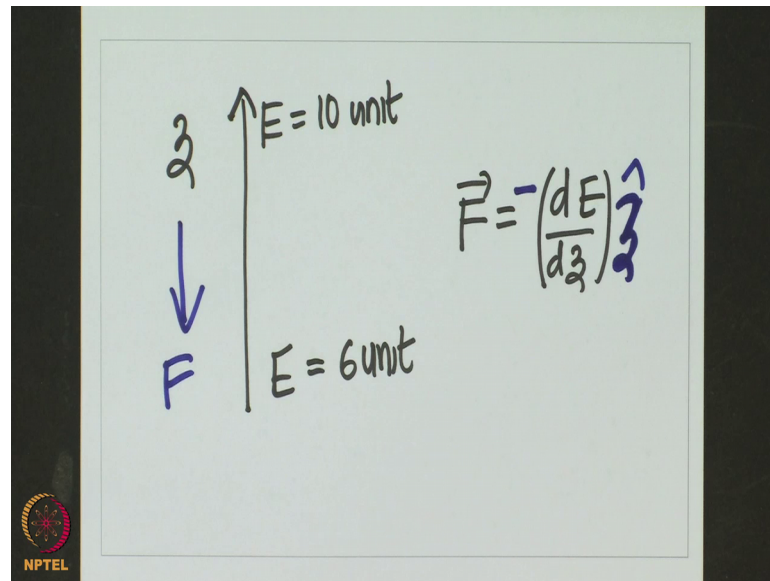 E = 10 unit
z
F⃗ = -(dE/dz) ẑ
F
E = 6 unit
NPTEL